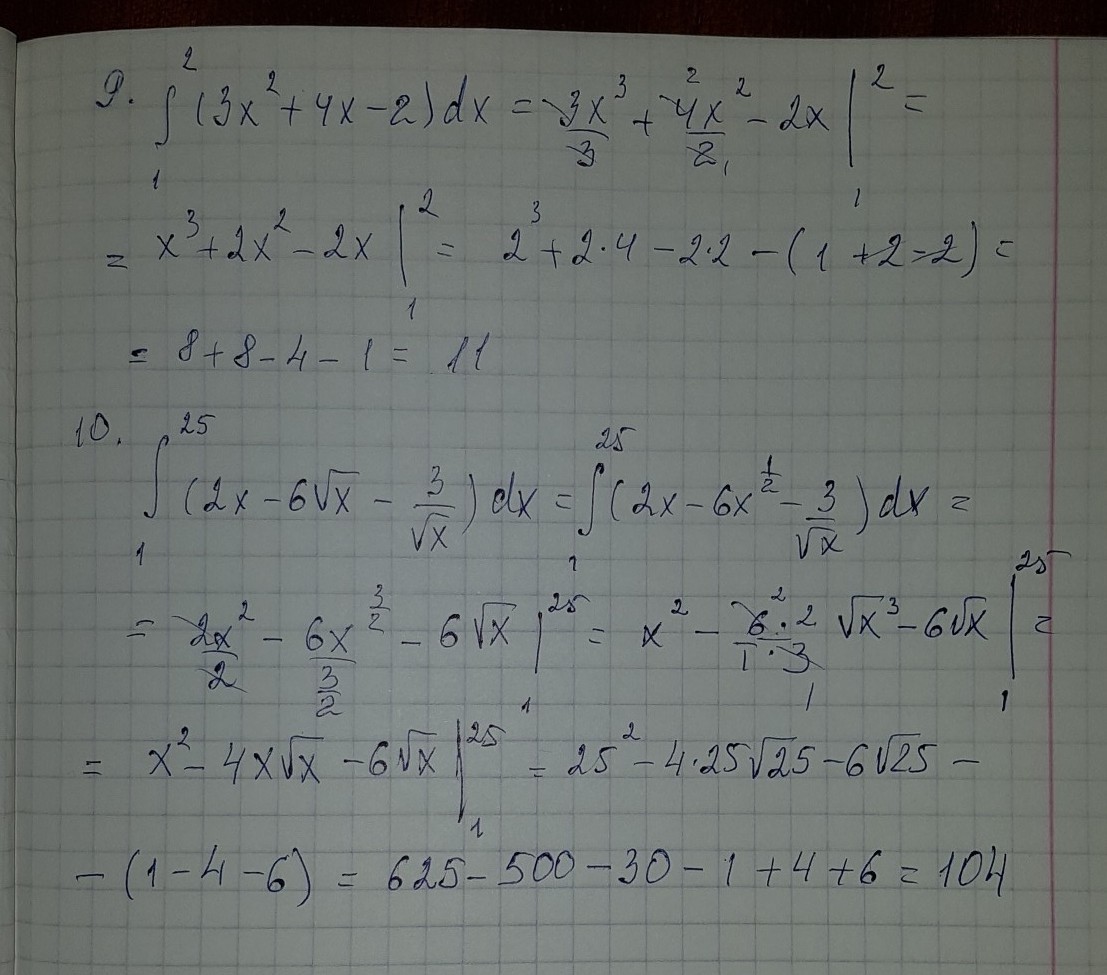 9. ∫₁² (3x² + 4x - 2) dx = 3x³/3 + 4x²/2 - 2x |₁² =
= x³ + 2x² - 2x |₁² = 2³ + 2·4 - 2·2 - (1 + 2 - 2) =
= 8 + 8 - 4 - 1 = 11
10. ∫₁²⁵ (2x - 6√x - 3/√x) dx = ∫₁²⁵ (2x - 6x^(1/2) - 3/√x) dx =
= 2x²/2 - 6x^(3/2)/(3/2) - 6√x |₁²⁵ = x² - (6·2)/(1·3) √x³ - 6√x |₁²⁵ =
= x² - 4x√x - 6√x |₁²⁵ = 25² - 4·25√25 - 6√25 -
- (1 - 4 - 6) = 625 - 500 - 30 - 1 + 4 + 6 = 104